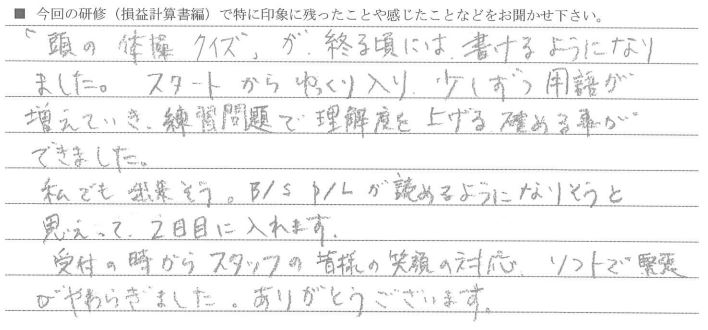 ■ 今回の研修（損益計算書編）で特に印象に残ったことや感じたことなどをお聞かせ下さい。
「頭の体操クイズ」が、終る頃には、書けるようになり
ました。スタートからゆっくり入り、少しずつ用語が
増えていき、練習問題で理解度を上げる確める事が
できました。
私でも出来そう。B/S P/Lが読めるようになりそうと
思えって、2日目に入れます。
受付の時からスタッフの皆様の笑顔の対応、ソフトで緊張
がやわらぎました。ありがとうございます。